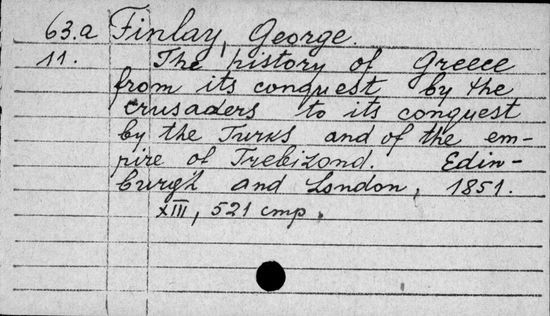 63.a Finlay, George.
11. The history of Greece
from its conquest by the
crusaders to its conquest
by the Turks and of the em-
pire of Trebizond. Edin-
burgh and London, 1851.
XIII, 521 cmp.